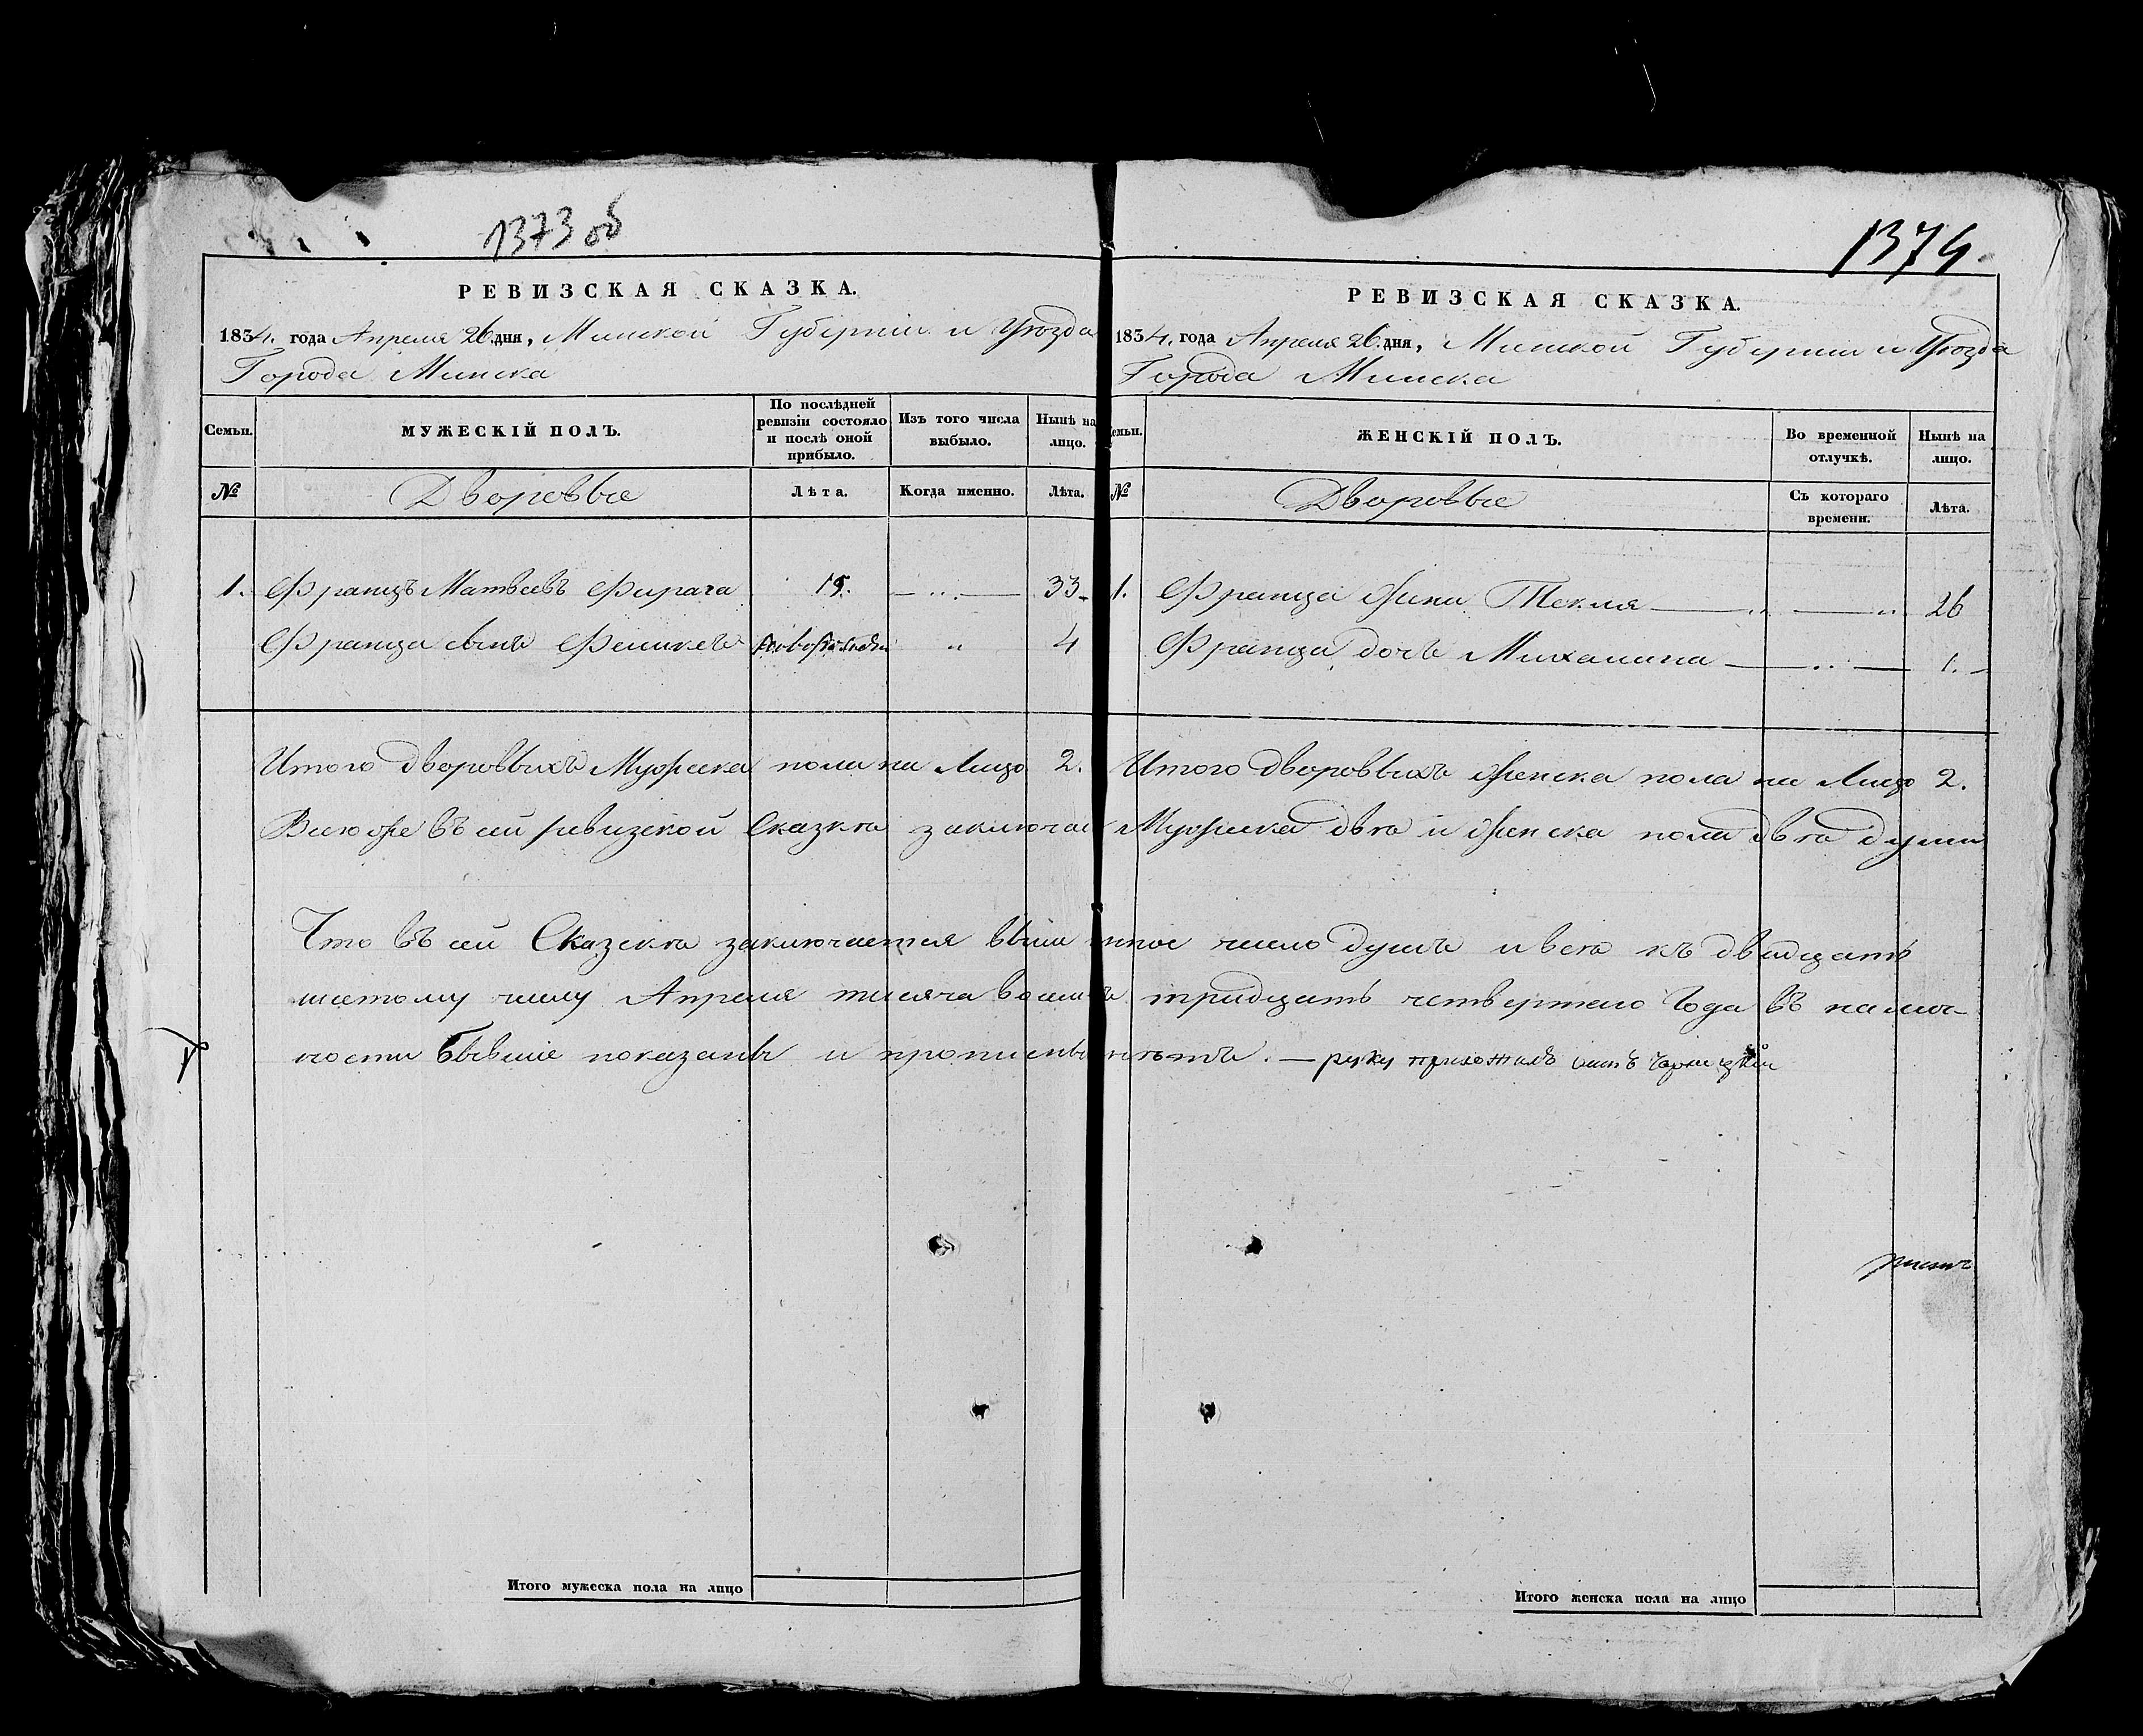 1373 об
РЕВИЗСКАЯ СКАЗКА.
1834. года Апреля 26. дня, Минской Губерніи и Уѣзда
Города Минска
Семьи.
МУЖЕСКІЙ ПОЛЪ.
По послѣдней ревизіи состояло и послѣ оной прибыло.
Изъ того числа выбыло.
Нынѣ на лицо.
№
Дворовые
Лѣта.
Когда именно.
Лѣта.
1. Францъ Матвеевъ Фирага 15. 33
Франца сынъ Феликсъ новорожден 4
Итого дворовыхъ Мужеска пола на Лицо 2.
Всего же въ сей ревизской Сказкѣ заключае
Что въ сей Сказскѣ заключается выше
шестому числу Апреля тысяча восемъ
ности бывшіе показаны и прописны
Итого мужеска пола на лицо
1374
РЕВИЗСКАЯ СКАЗКА.
1834. года Апреля 26. дня, Минской Губерніи и Уѣзда
Города Минска
Семьи.
ЖЕНСКІЙ ПОЛЪ.
Во временной отлучкѣ.
Нынѣ на лицо.
№
Дворовые
Съ котораго времени.
Лѣта.
1. Франца жена Текля 26
Франца дочь Михалина 1.
Итого дворовыхъ женска пола на Лицо 2.
Мужеска два и женска пола двѣ души
число душъ и всѣ къ двадцать
тридцать четвертого Года въ налич-
руку приложилъ
Итого женска пола на лицо